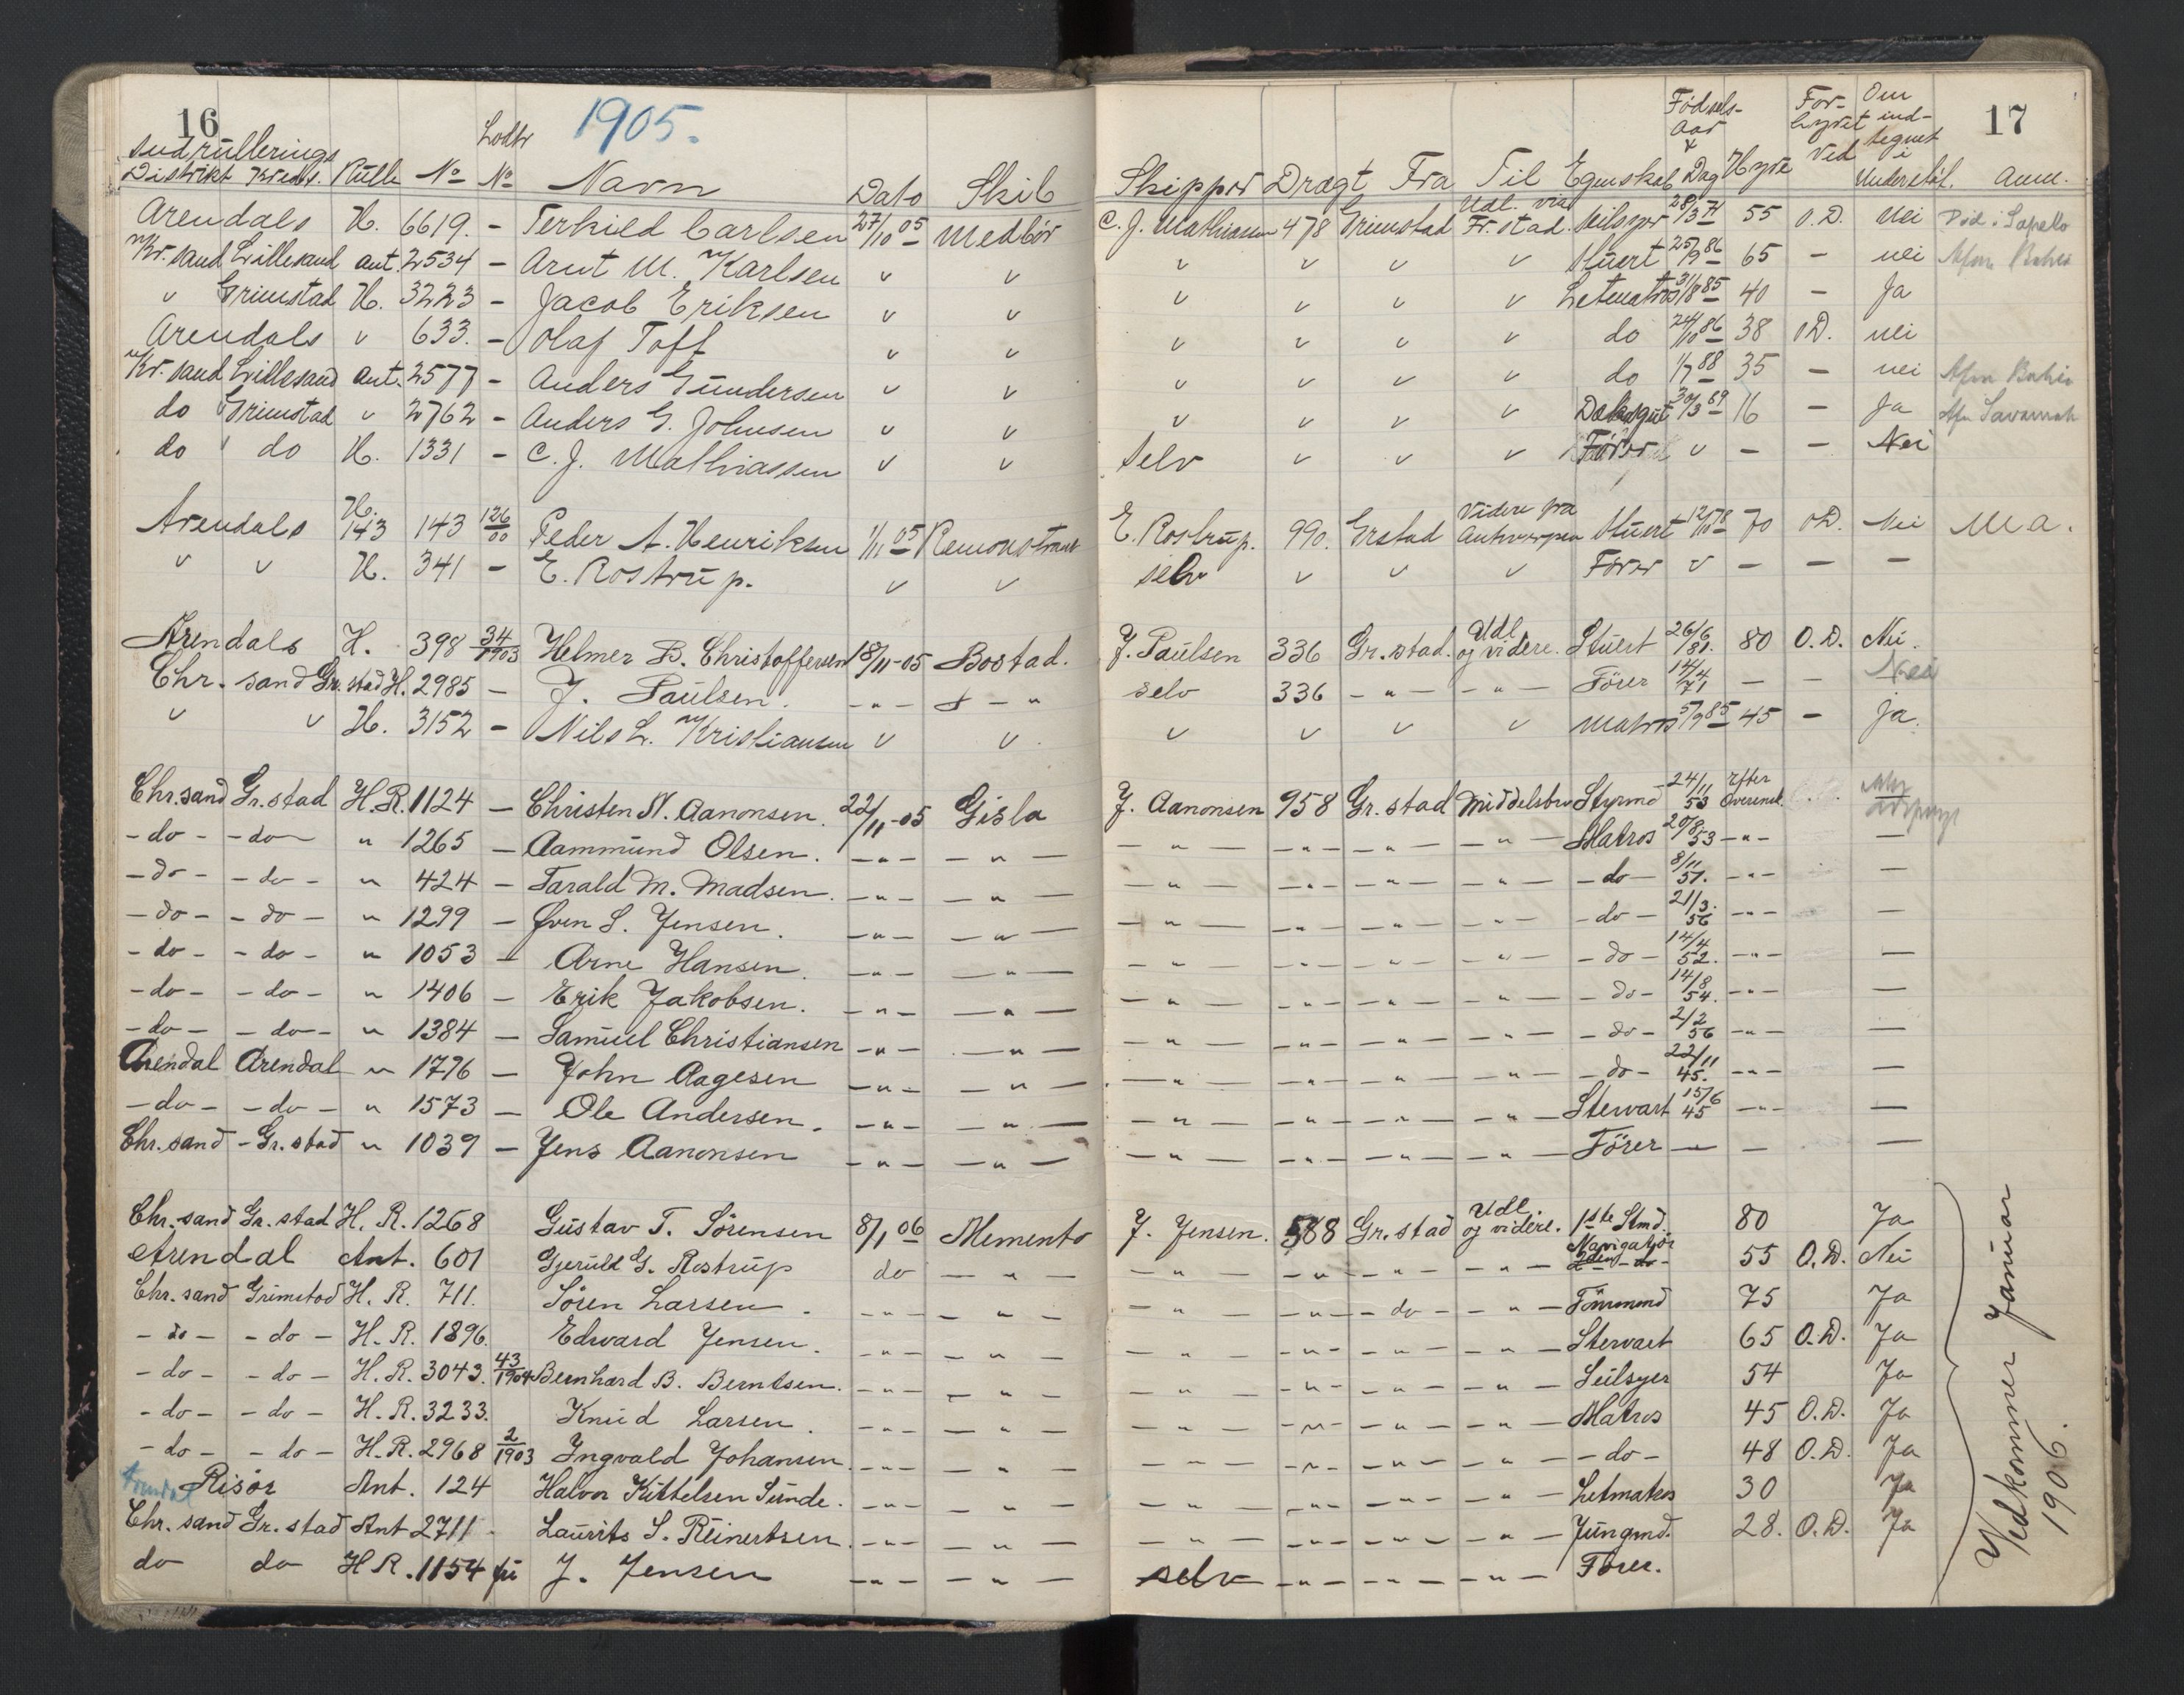 16 1905. 17
Indrullerings Lodtr Fødsels- For- Om
Aar hyret ind-
& Ved tegnet i
Distrikt Kreds. Rulle No No Navn Dato Skib Skipper Drægt Fra Til Egenskab Dag Hyre Understøt. Anm.
Arendals H. 6619. - Terkild Carlsen 27/10 05 Medbör C. J. Mathiassen 478 Grimstad Udl. via Fr.stad. Seilsyer 28/3 71 55 O.D. Nei Död i Sapello
Kr.sand Lillesand ant. 2534 - Arnt M. Karlsen v v v v v v Stuert 25/9 86 65 - nei Afm Bahia
v Grimstad H. 3223 - Jacob Eriksen v v v v v v Letmatros 31/8 85 40 - Ja
Arendals v 633. - Olaf Toft v v v v v v do 24/10 86 38 O.D. nei
Kr.sand Lillesand ant. 2577 - Anders Gundersen v v v v v v do 1/7 88 35 - nei Afm Bahia
do Grimstad v 2762 - Anders G. Johnsen v v v v v v Dæksgut 30/3 89 16 - Ja Afm Savannah
do v do H. 1331 - C. J. Mathiassen v v Selv v v v Förer v - - Nei
Arendals H. 143 143 126/00 Peder A. Henriksen 1/11 05 Remonstrant E. Rostrup. 990. Grstad Videre fra Antwerpen Stuert 12/10 78 70 O.D. Nei M a.
v v H. 341 - E. Rostrup. v v selv v v v Förer v - - -
Arendals H. 398 34/1903 Helmer B. Christoffersen 18/11-05 Bostad. J. Paulsen 336 Gr.stad. Udl og videre. Stuert 26/6 81. 80 O.D. Nei.
Chr.sand Gr.stad H. 2985 - J. Paulsen. - " - - " selv 336 - " - - " - Förer 14/4 71 - - Nei
v v H. 3152 - Nils L. Kristiansen v v v v v v Matros 5/9 85 45 - ja.
Chr.sand Gr.stad H.R. 1124 - Christen N. Aanonsen. 22/11-05 Gisla J. Aanonsen 958 Gr.stad Middelsbro Styrmd 24/11 53 Efter Overensk.
- do - - do - " 1265 - Aammund Olsen. - " - - " - - " - - " - - " - - " - Matros 20/8 53 - " - -
- do - - do - " 424 - Tarald M. Madsen. - " - - " - - " - - " - - " - - " - - do - 8/11 51. - " - -
- do - - do - " 1299 - Even S. Jensen. - " - - " - - " - - " - - " - - " - - do - 21/3. 56 - " - -
- do - - do - " 1053 - Arne Hansen. - " - - " - - " - - " - - " - - " - - do - 14/4 52. - " - -
- do - - do - " 1406 - Erik Jakobsen. - " - - " - - " - - " - - " - - " - - do - 14/8 54. - " - -
- do - - do - " 1384 - Samuel Christiansen - " - - " - - " - - " - - " - - " - - do - 2/2 56 - " - -
Arendal Arendal " 1776 - John Aagesen - " - - " - - " - - " - - " - - " - - do - 22/11 45. - " - -
- do - - do - " 1573 - Ole Andersen. - " - - " - - " - - " - - " - - " - Stewart 15/6 45 - " - -
Chr.sand - Gr.stad " 1039 - Jens Aanonsen - " - - " - - " - - " - - " - - " - Förer - - -
Chr.sand Gr.stad H.R. 1268 Gustav T. Sörensen 8/1 06 Memento J. Jensen. 588 Gr.stad Udl. og videre. 1ste Stmd. 80 Ja
Arendal Ant. 601 Gjeruld G. Rostrup do - " - - " - - " - - " - - " - Navigatör 2den - do - 55 O.D. Nei
Chr.sand Grimstad H.R. 711. Sören Larsen. - " - - " - - " - - " - - do - - " - Tömmend 75 Ja
- do - - do - H.R. 1896. Edvard Jensen. - " - - " - - " - - " - - " - - " - Stevart 65 O.D. Ja
- do - - do - H.R. 3043. 43/1904 Bernhard B. Berntsen. - " - - " - - " - - " - - " - - " - Seilsyer 54 Ja
- do - - do - H.R. 3233. Knud Larsen. - " - - " - - " - - " - - " - - " - Matros 45 O.D. Ja
- do - - do - H.R. 2968 2/1903 Ingvald Johansen. - " - - " - - " - - " - - " - - " - - do - 48 O.D. Ja
Arendal Risør Ant. 124 Halvor Kittelsen Sunde. - " - - " - - " - - " - - " - - " - Letmatros 30 Ja
Chr.sand Gr.stad Ant 2711 Laurits S. Reinertsen. - " - - " - - " - - " - - " - - " - Jungmd. 28. O.D. Ja
do do HR. 1154 J. Jensen - " - - " - selv - " - - " - - " - Fører.
Vedkommer Januar
1906.